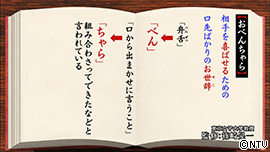 【おべんちゃら】
相手を喜ばせるための
口先ばかりのお世辞
「弁舌」
「べん」
「口から出まかせに言うこと」
「ちゃら」
組み合わさってできたなどと
言われている
©NTV